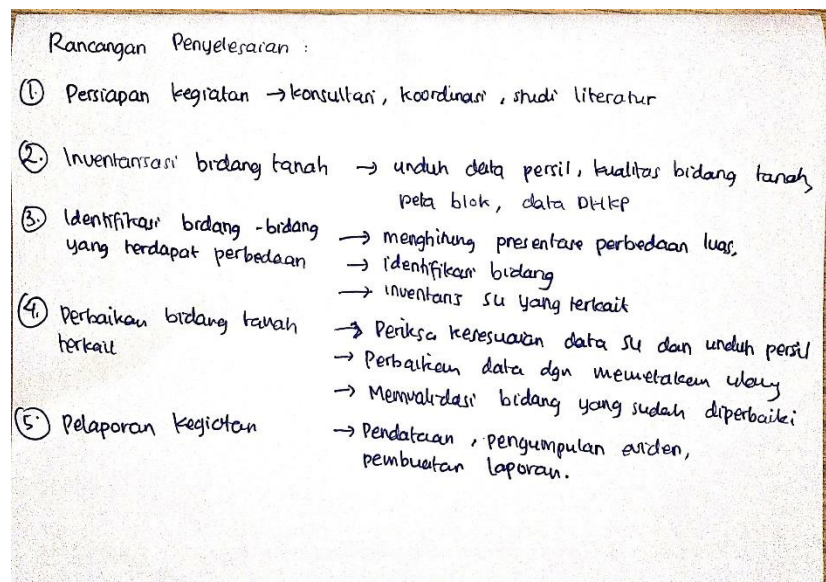 Rancangan Penyelesaian :
1. Persiapan kegiatan → konsultasi, koordinasi, studi literatur
2. Inventarisasi bidang tanah → unduh data persil, kualitas bidang tanah,
peta blok, data DHKP
3. Identifikasi bidang-bidang → menghitung presentase perbedaan luas,
yang terdapat perbedaan → identifikasi bidang
→ inventaris su yang terkait
4. Perbaikan bidang tanah → Periksa kesesuaian data su dan unduh persil
terkait → Perbaikan data dgn memetakan ulang
→ Memvalidasi bidang yang sudah diperbaiki
5. Pelaporan kegiatan → Pendataan, pengumpulan eviden,
pembuatan laporan.